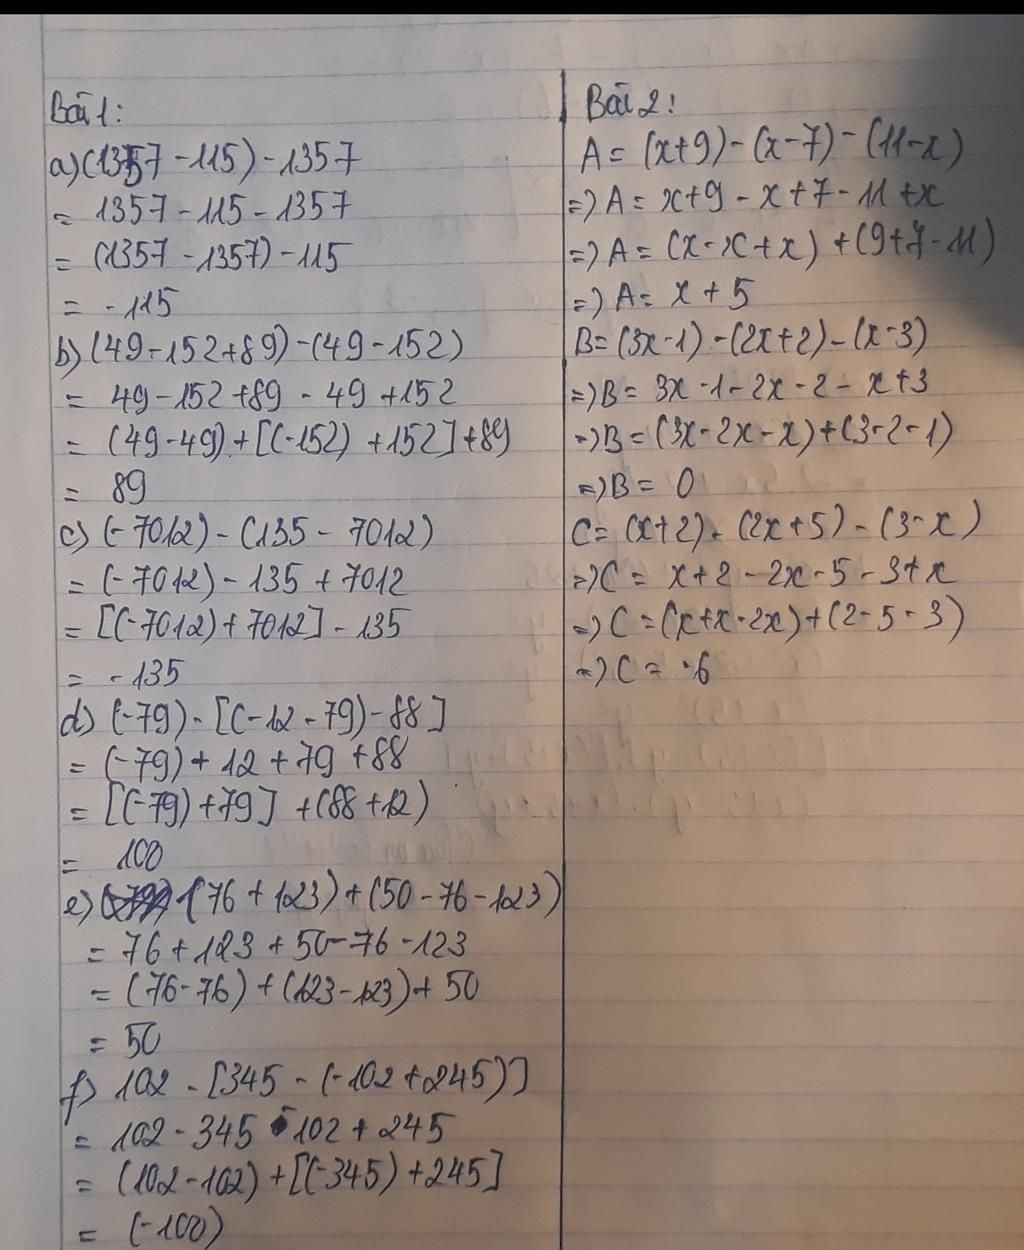 Bài 1:
a) (1357 - 115) - 1357
= 1357 - 115 - 1357
= (1357 - 1357) - 115
= - 115
b) (49 - 152 + 89) - (49 - 152)
= 49 - 152 + 89 - 49 + 152
= (49 - 49) + [(-152) + 152] + 89
= 89
c) (-7012) - (135 - 7012)
= (-7012) - 135 + 7012
= [(-7012) + 7012] - 135
= - 135
d) (-79) - [(-12 - 79) - 88]
= (-79) + 12 + 79 + 88
= [(-79) + 79] + (88 + 12)
= 100
e) (76 + 123) + (50 - 76 - 123)
= 76 + 123 + 50 - 76 - 123
= (76 - 76) + (123 - 123) + 50
= 50
f) 102 - [345 - (-102 + 245)]
= 102 - 345 - 102 + 245
= (102 - 102) + [(-345) + 245]
= (-100)
Bài 2:
A = (x + 9) - (x - 7) - (11 - x)
=> A = x + 9 - x + 7 - 11 + x
=> A = (x - x + x) + (9 + 7 - 11)
=> A = x + 5
B = (3x - 1) - (2x + 2) - (x - 3)
=> B = 3x - 1 - 2x - 2 - x + 3
=> B = (3x - 2x - x) + (3 - 2 - 1)
=> B = 0
C = (x + 2) - (2x + 5) - (3 - x)
=> C = x + 2 - 2x - 5 - 3 + x
=> C = (x + x - 2x) + (2 - 5 - 3)
=> C = -6